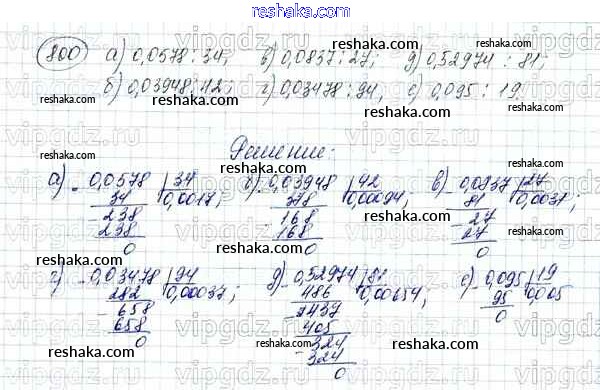 reshaka.com
800) а) 0,0578 : 34; в) 0,0837 : 27; д) 0,52974 : 81;
reshaka.com
б) 0,03948 : 42; г) 0,03478 : 94; е) 0,095 : 19.
reshaka.com reshaka.com reshaka.com
Решение:
а) 0,0578 | 34 б) 0,03948 | 42 в) 0,0837 | 27
34 0,0017; 378 0,00094; 81 0,0031;
238 168 27
238 168 27
0 0 0
reshaka.com reshaka.com reshaka.com
г) 0,03478 | 94 д) 0,52974 | 81 е) 0,095 | 19
282 0,00037; 486 0,00654; 95 0,005
658 437 0
658 405
0 324
324
0
reshaka.com reshaka.com reshaka.com
vipgdz.ru vipgdz.ru vipgdz.ru